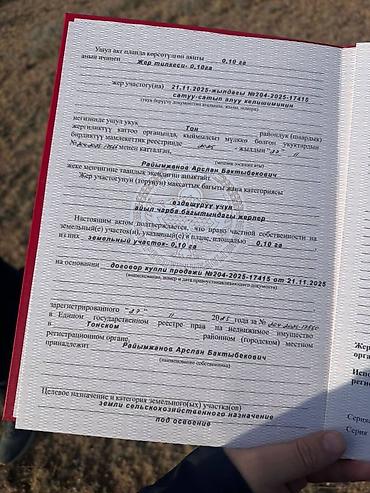 Ушул акт планда көрсөтүлгөн аянты 0,10 га
анын ичинен Жер тилкеси- 0,10га
жер участогу(на) 21.11.2025-жылдагы №204-2025-17415
сатуу-сатып алуу келишиминин
негизинде ушул укук
жергиликтүү каттоо органында, Тон райондук (шаардык)
кыймылсыз мүлккө болгон укуктардын
бирдиктүү мамлекеттик реестринде 2025 -жылдын "27" 11
менен катталган,
Райымжанов Арслан Бактыбекович
жеке менчигине таандык экендигин ырастайт
Жер участогунун (торунун) максаттык багыты жана категориясы
өздөштүрүү үчүн
айыл чарба багытындагы жерлер
Настоящим актом подтверждается, что право частной собственности на
земельный(е) участок(и), указанный(е) в плане, площадью 0,10 га
из них земельный участок- 0,10 га
на основании договор купли продажи №204-2025-17415 от 21.11.2025
(наименование, номер и дата правоустанавливающего документа)
зарегистрированного "27" 11 2025 года за №
в Едином государственном реестре прав на недвижимое имущество
в Тонском районном (городском) местном
регистрационном органе,
принадлежит Райымжанов Арслан Бактыбекович
(наименование собственника)
Целевое назначение и категория земельного(ых) участка(ов)
земли сельскохозяйственного назначение
под освоение
Серия